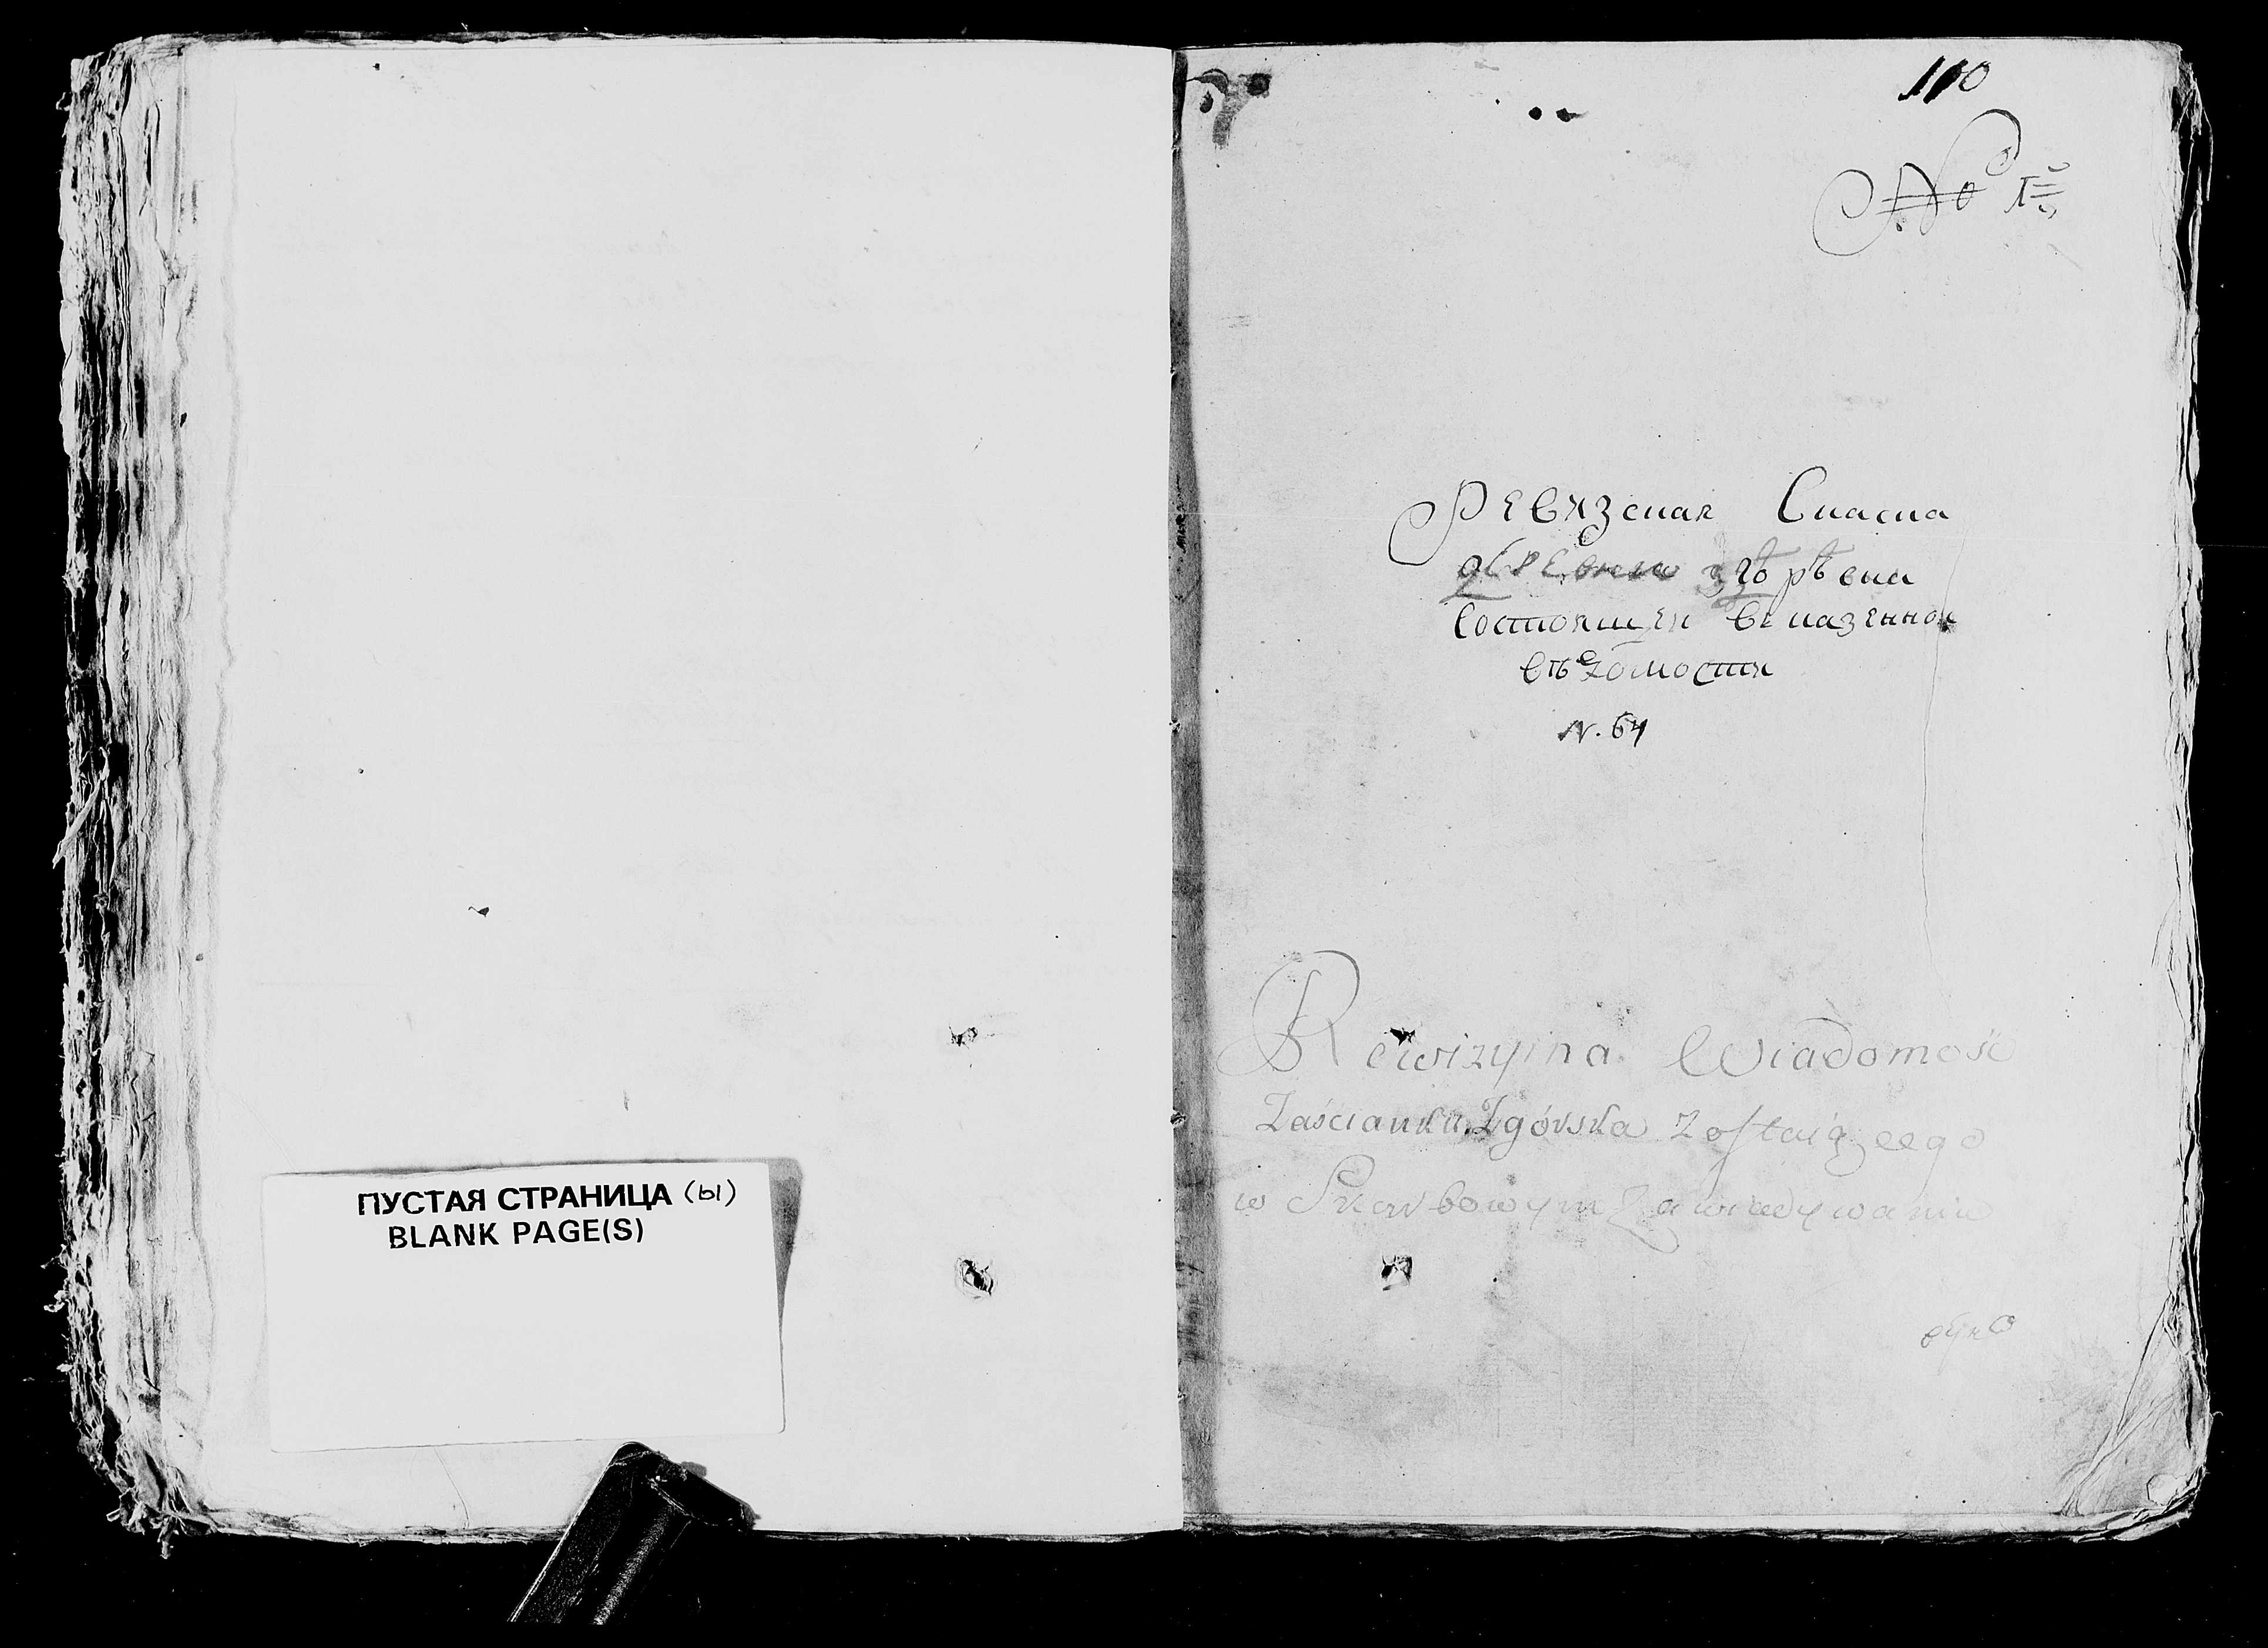 ПУСТАЯ СТРАНИЦА (ы)
BLANK PAGE(S)
110
No
Ревизская Скаска
деревни
состоящей в казенной
въдомости
N. 64
Rewizyina Wiadomość
Zaścianku Zgórska Zostaiącego
w Skarbowym Zawiedywaniu